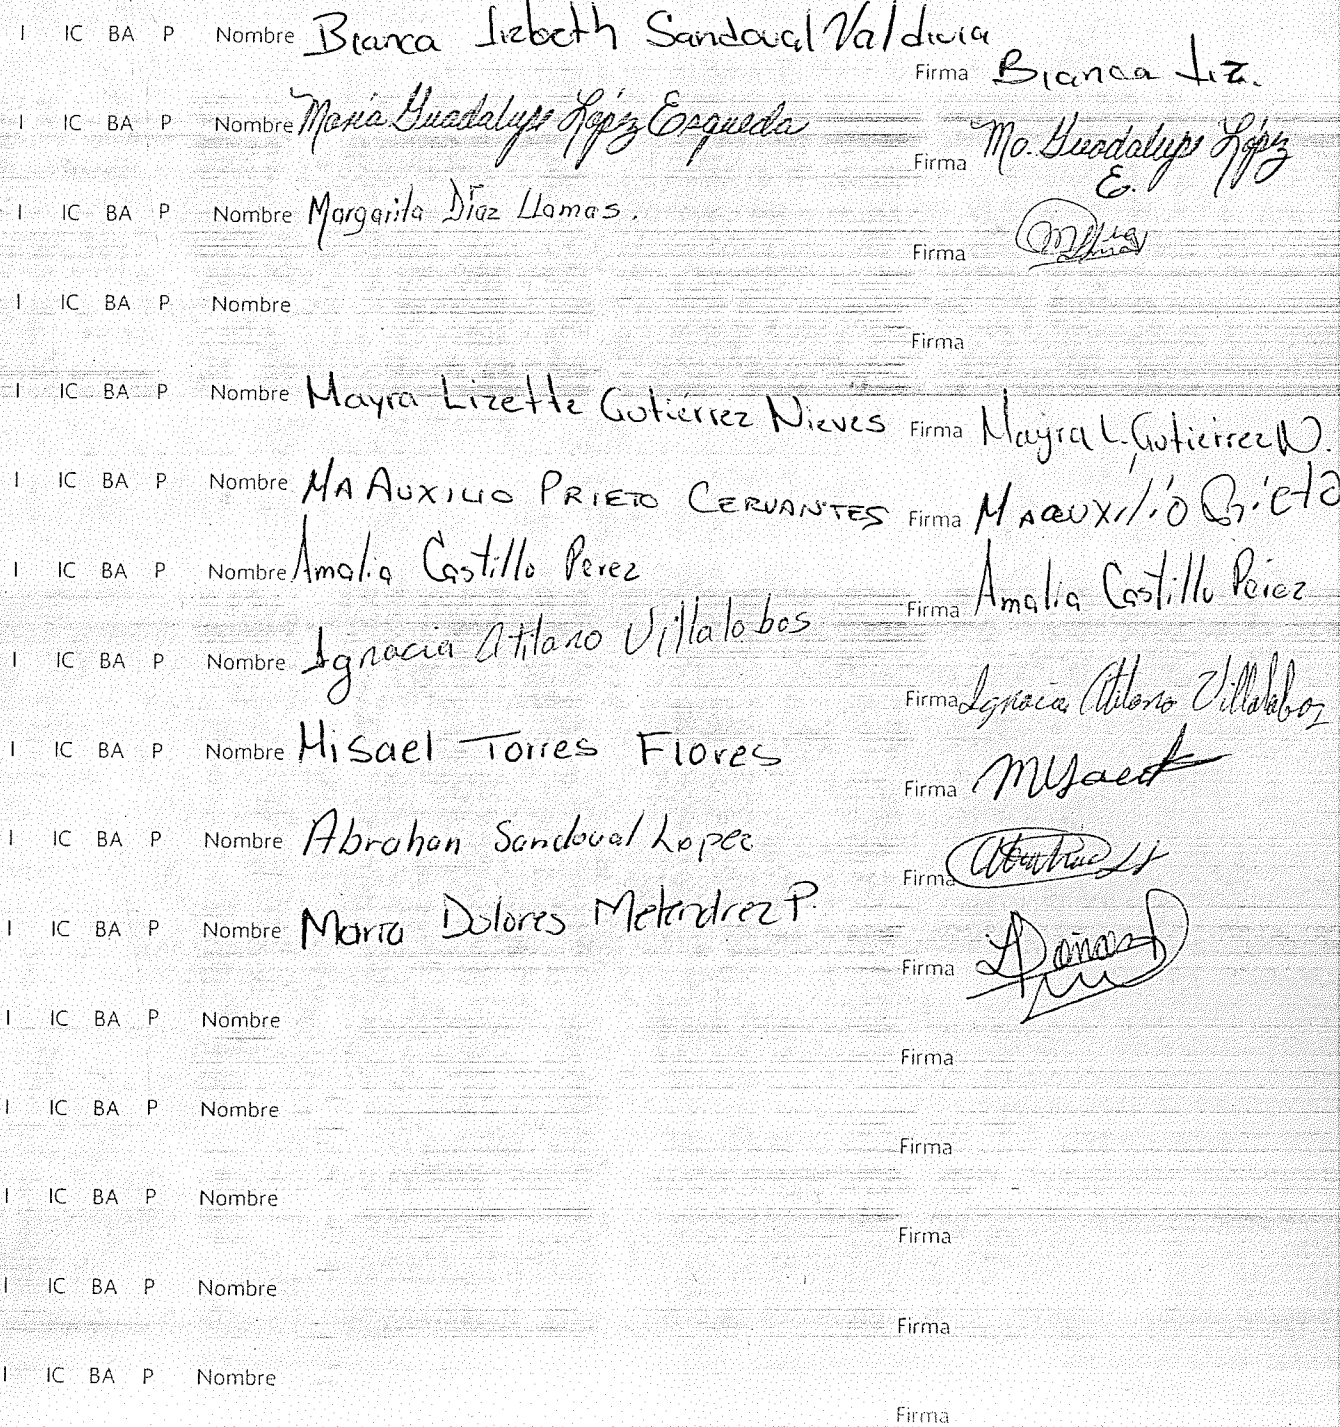 I IC BA P Nombre Bianca Lizbeth Sandoval Valdivia
Firma Bianca Liz.
I IC BA P Nombre María Guadalupe López Esqueda
Firma Ma. Guadalupe López E.
I IC BA P Nombre Margarita Díaz Llamas.
Firma
I IC BA P Nombre
Firma
I IC BA P Nombre Mayra Lizette Gutiérrez Nieves
Firma Mayra L. Gutiérrez N.
I IC BA P Nombre MA AUXILIO PRIETO CERVANTES
Firma MA auxilio Prieto
I IC BA P Nombre Amalia Castillo Perez
Firma Amalia Castillo Perez
I IC BA P Nombre Ignacia Atilano Villalobos
Firma Ignacia Atilano Villalobos
I IC BA P Nombre Misael Torres Flores
Firma
I IC BA P Nombre Abrahan Sandoval Lopez
Firma
I IC BA P Nombre Maria Dolores Melendrez P.
Firma
I IC BA P Nombre
Firma
I IC BA P Nombre
Firma
I IC BA P Nombre
Firma
I IC BA P Nombre
Firma
I IC BA P Nombre
Firma